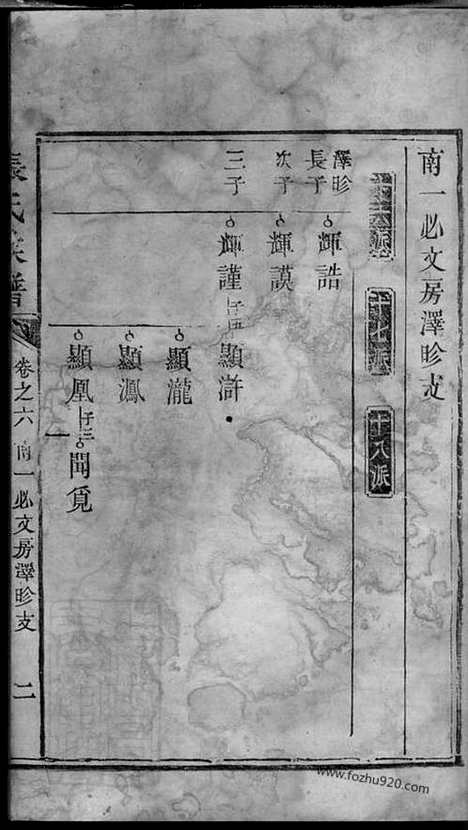 南一必文房澤昣支
十六派
十七派
十八派
澤昣
長子
輝誥
次子
輝謨
三子
輝謹
顯滸
顯瀧
顯鳳
聞覓
張氏族譜
卷之六
南一必文房澤昣支
二
www.fozhu920.com